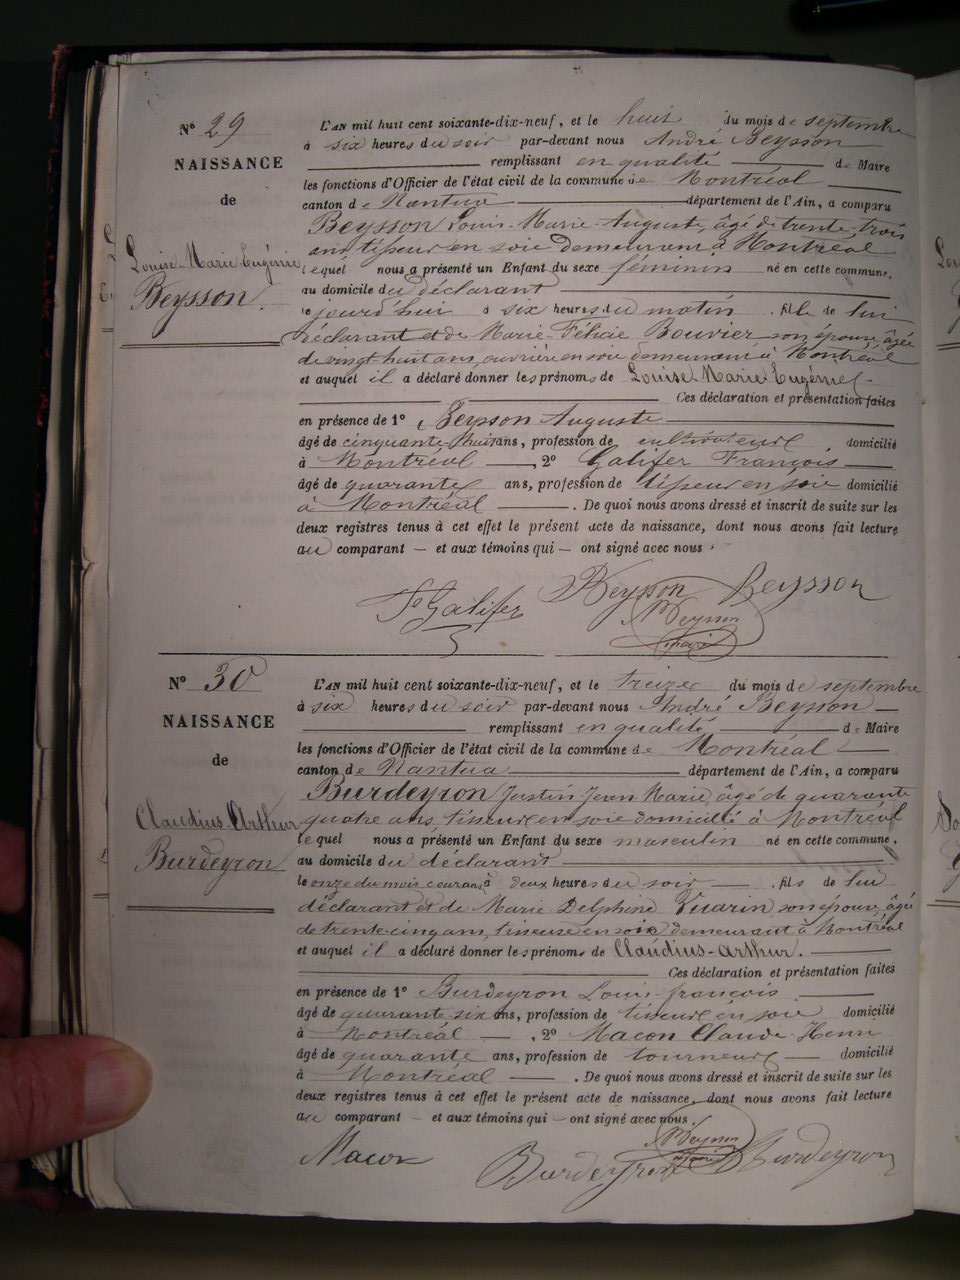 N° 29
NAISSANCE
de
Louise-Marie Eugénie
Beysson.
L'AN mil huit cent soixante-dix-neuf, et le huit du mois de septembre
à six heures du soir par-devant nous André Beysson
remplissant en qualité de Maire
les fonctions d'Officier de l'état civil de la commune de Montréal
canton de Nantua département de l'Ain, a comparu
Beysson Louis-Marie-Auguste, âgé de trente-trois
ans, tisseur en soie demeurant à Montréal
lequel nous a présenté un Enfant du sexe féminin né en cette commune,
au domicile du déclarant
le jourd'hui à six heures du matin . fille de lui
déclarant et de Marie-Félicie Bouvier son épouse, âgée
de vingt-huit ans, ouvrière en soie demeurant à Montréal
et auquel il a déclaré donner les prénoms de Louise Marie Eugénie
Ces déclaration et présentation faites
en présence de 1° Beysson Auguste
âgé de cinquante-huit ans, profession de cultivateur domicilié
à Montréal , 2° Galifer François
âgé de quarante ans, profession de tisseur en soie domicilié
à Montréal . De quoi nous avons dressé et inscrit de suite sur les
deux registres tenus à cet effet le présent acte de naissance, dont nous avons fait lecture
au comparant — et aux témoins qui — ont signé avec nous.
Galifer Beysson Beysson
Beysson
N° 30
NAISSANCE
de
Claudius-Arthur
Burdeyron
L'AN mil huit cent soixante-dix-neuf, et le treize du mois de septembre
à six heures du soir par-devant nous André Beysson
remplissant en qualité de Maire
les fonctions d'Officier de l'état civil de la commune de Montréal
canton de Nantua département de l'Ain, a comparu
Burdeyron Justin Jean Marie, âgé de quarante
quatre ans, tisseur en soie domicilié à Montréal
lequel nous a présenté un Enfant du sexe masculin né en cette commune,
au domicile du déclarant
le onze du mois courant à deux heures du soir . fils de lui
déclarant et de Marie Delphine Tuarin son épouse, âgée
de trente-cinq ans, tisseuse en soie demeurant à Montréal
et auquel il a déclaré donner les prénoms de Claudius-Arthur.
Ces déclaration et présentation faites
en présence de 1° Burdeyron Louis-françois
âgé de quarante-six ans, profession de tisseur en soie domicilié
à Montréal , 2° Macon Claude-Henri
âgé de quarante ans, profession de tourneur domicilié
à Montréal . De quoi nous avons dressé et inscrit de suite sur les
deux registres tenus à cet effet le présent acte de naissance, dont nous avons fait lecture
au comparant — et aux témoins qui — ont signé avec nous.
Beysson
Macon Burdeyron Burdeyron